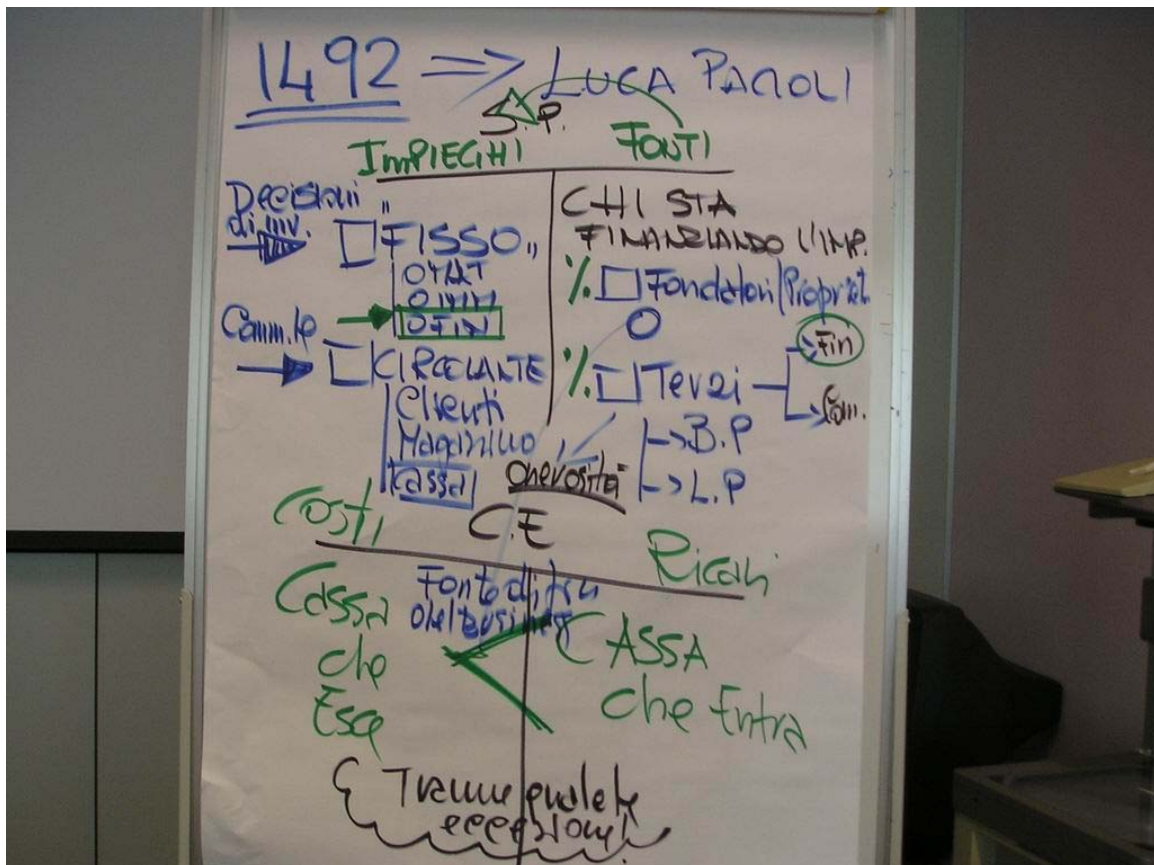 1492 ⇒ LUCA PACIOLI
S.P.
IMPIEGHI FONTI
Decisioni di inv. → "FISSO"
O MAT
O IMM
O FIN
Comm.le → CIRCOLANTE
Clienti
Magazzino
Cassa
CHI STA
FINANZIANDO L'IMP.
% Fondatori/Propriet.
% Terzi → Fin
→ Com.
→ B.P
→ L.P
Onerosità
Costi C.E Ricavi
Cassa
che
Esce
del business
CASSA
che Entra
Tranne qualche
eccezione!